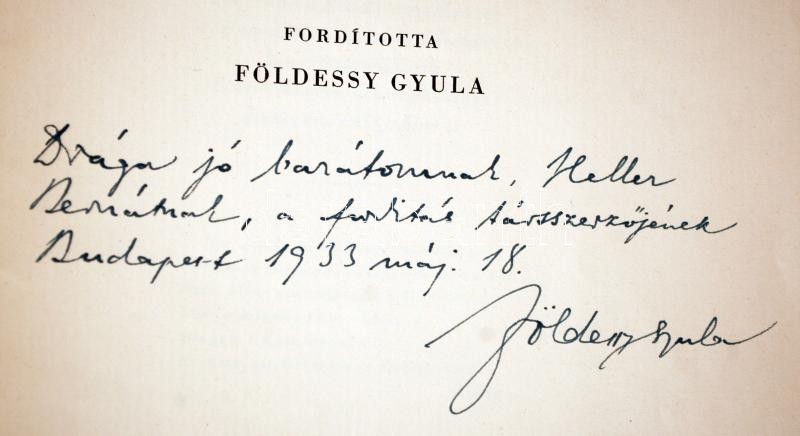 FORDÍTOTTA
FÖLDESSY GYULA
Drága jó barátomnak, Heller
Bernátnak, a fordítás társszerzőjének
Budapest 1933 máj. 18.
Földessy Gyula